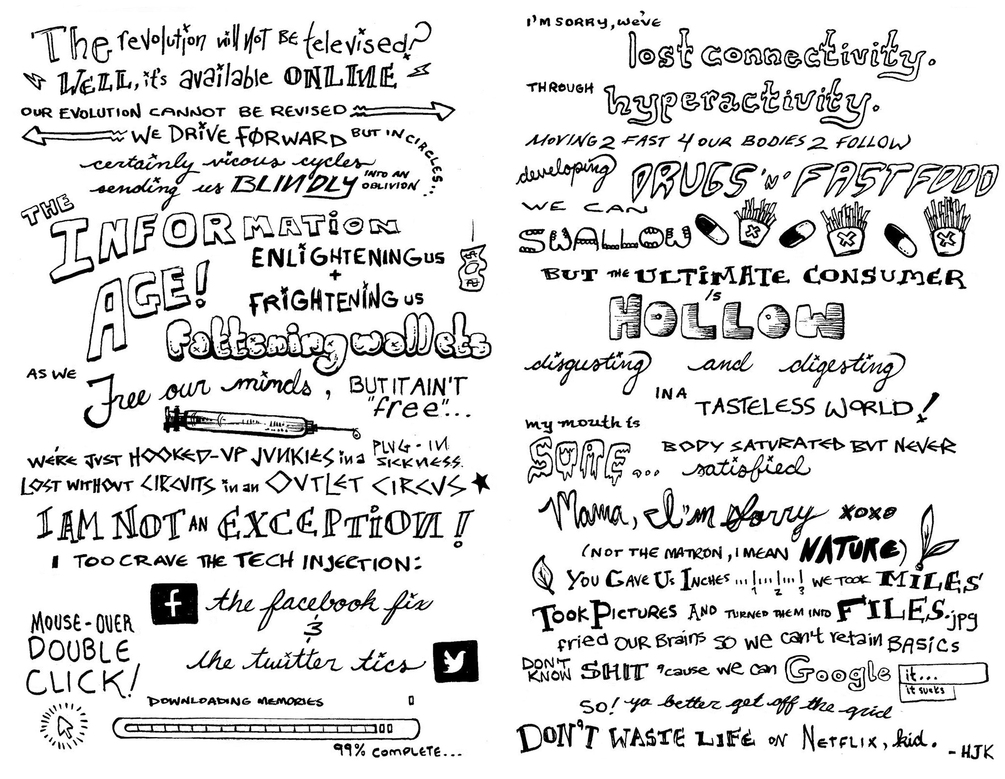 The revolution will not be televised?
WELL, it's available ONLINE
OUR EVOLUTION CANNOT BE REVISED
WE DRIVE FORWARD BUT IN CIRCLES...
certainly vicous cycles
sending us BLINDLY INTO AN OBLIVION
THE INFORMATION
AGE!
ENLIGHTENING US
+
FRIGHTENING US
fattening wallets
AS WE Free our minds, BUT IT AIN'T
"free"...
WE'RE JUST HOOKED-UP JUNKIES in a PLUG-IN SICKNESS.
LOST WITHOUT CIRCUITS in an OUTLET CIRCUS
I AM NOT AN EXCEPTION!
I TOO CRAVE THE TECH INJECTION:
f the facebook fix
&
the twitter tics
MOUSE-OVER
DOUBLE
CLICK!
DOWNLOADING MEMORIES
99% COMPLETE...
I'M SORRY, WE'VE
lost connectivity.
THROUGH hyperactivity.
MOVING 2 FAST 4 OUR BODIES 2 FOLLOW
developing DRUGS 'N' FASTFOOD
WE CAN
SWALLOW
BUT THE ULTIMATE CONSUMER
is
HOLLOW
disgusting and digesting
IN A TASTELESS WORLD!
my mouth is
SORE... BODY SATURATED BUT NEVER
satisfied
Mama, I'm Sorry xoxo
(NOT THE MATRON, I MEAN NATURE)
YOU GAVE US INCHES 1 2 3 WE TOOK MILES
TOOK PICTURES AND TURNED THEM INTO FILES.jpg
fried OUR Brains SO WE can't retain BASICS
DON'T KNOW SHIT 'cause we can Google it...
it sucks
SO! ya better get off the grid
DON'T WASTE LIFE ON NETFLIX, kid.
- HJK